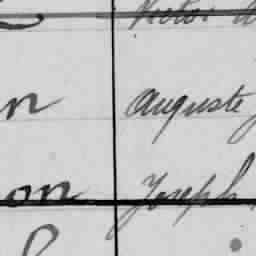 Victor
n Auguste
on Joseph